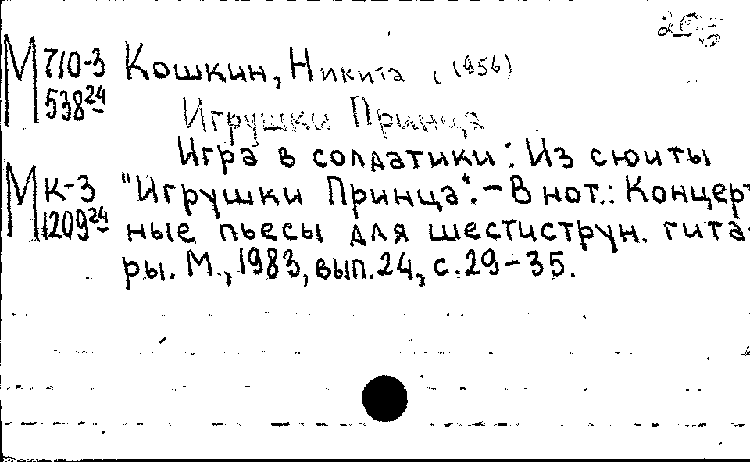 М 710-3 Кошкин, Никита (1956)
538 24
Игрушки Принца
Игра в солдатики: Из сюиты
М К-3 "Игрушки Принца". - В нот.: Концерт-
1209 24 ные пьесы для шестиструн. гита-
ры. М., 1983, вып. 24, с. 29-35.